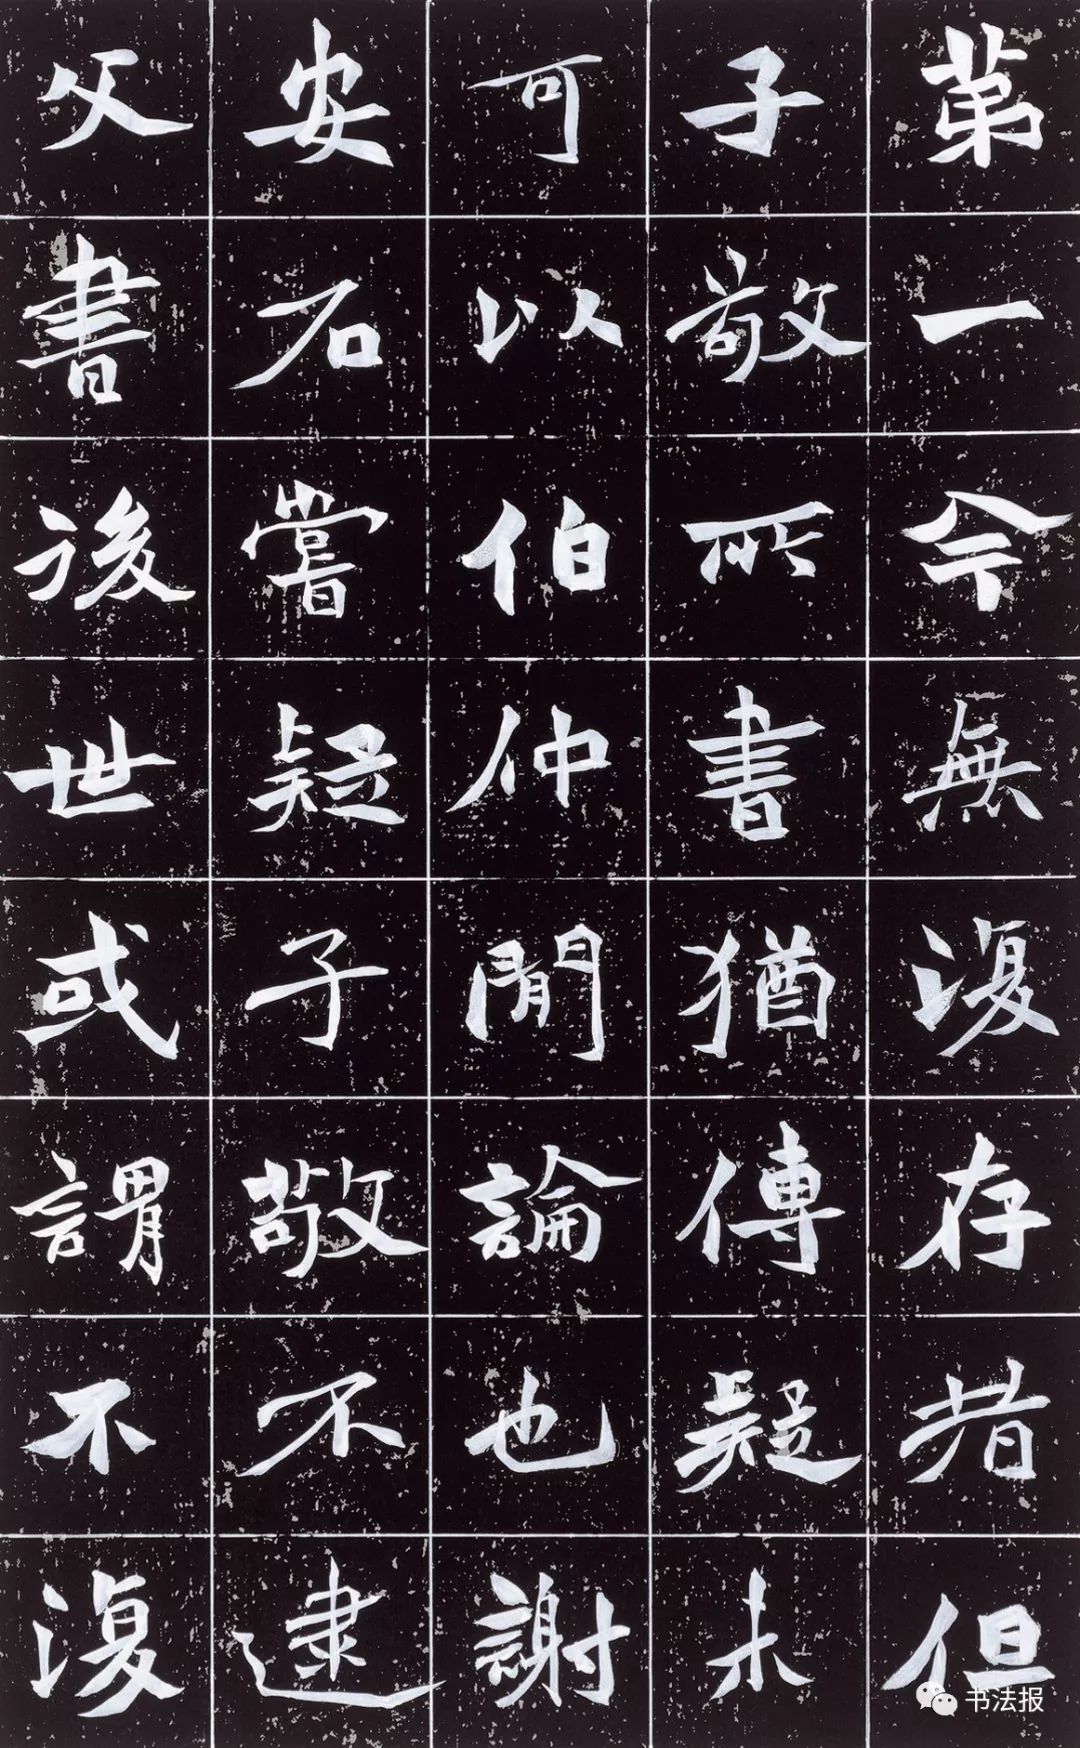 第一今無復存者但
子敬所書猶傳疑未
可以伯仲閒論也謝
安石嘗疑子敬不逮
父書後世或謂不復
书法报